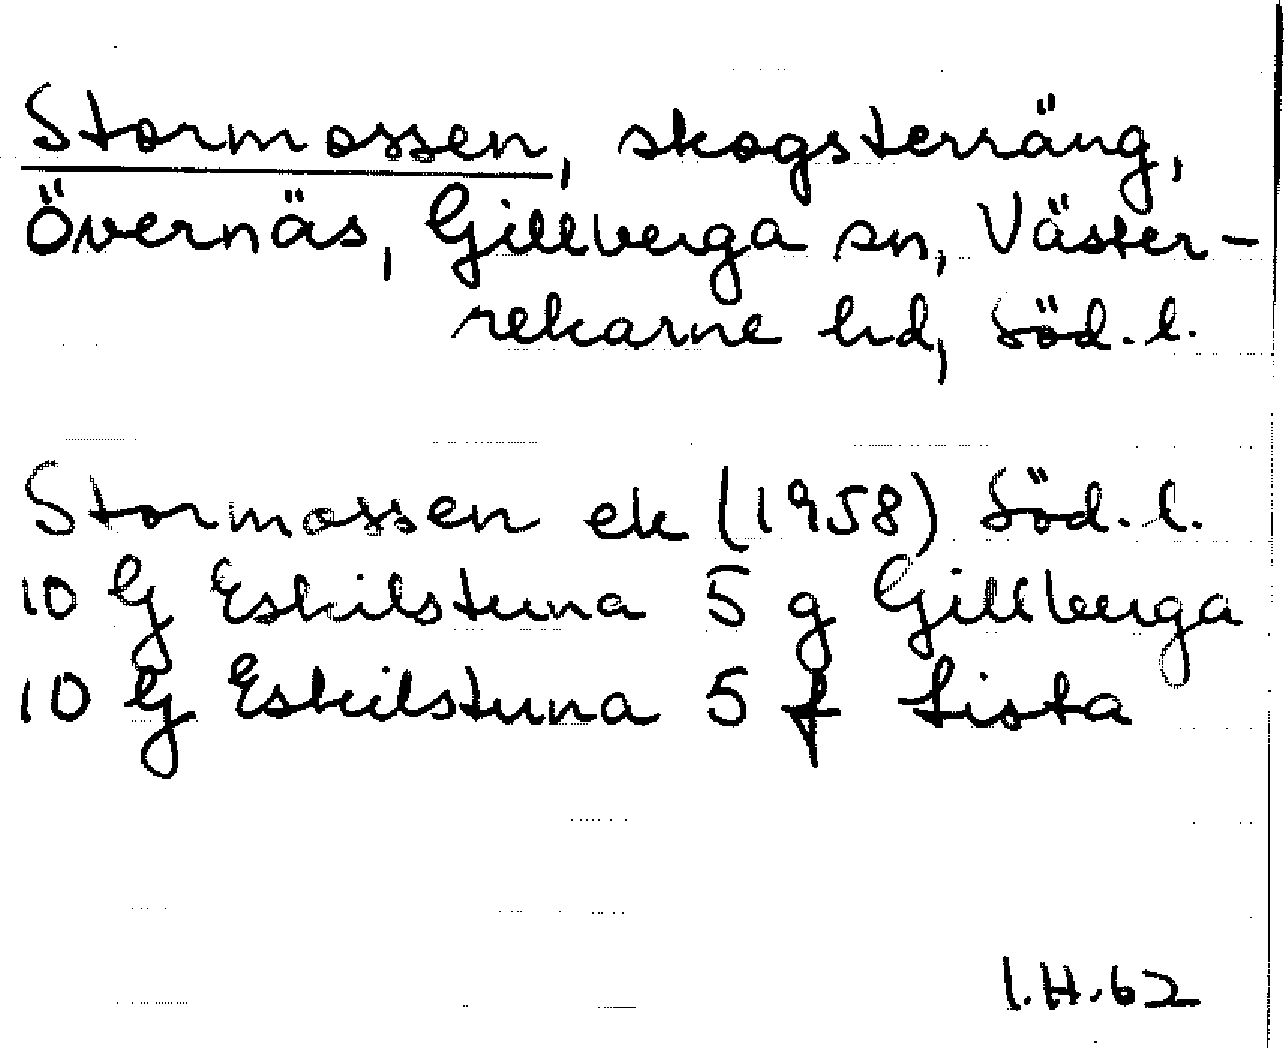 Stormossen, skogsterräng,
Övernäs, Gillberga sn, Väster-
rekarne hd, Söd. l.
Stormossen ek (1958) Söd. l.
10 G Eskilstuna 5 g Gillberga
10 G Eskilstuna 5 f Lista
I.H.62